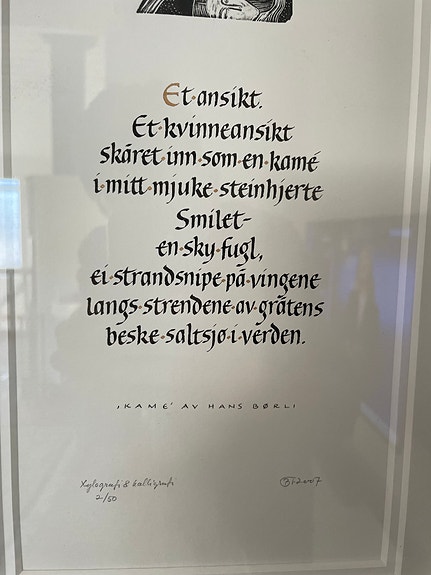 Et·ansikt.
Et·kvinneansikt
skåret·inn·som·en·kamé
i·mitt·mjuke·steinhjerte
Smilet–
en·sky·fugl,
ei·strandsnipe·på·vingene
langs·strendene·av·gråtens
beske·saltsjø·i·verden.
'KAMÉ' AV HANS BØRLI
Xylografi & kalligrafi
2/50
2007